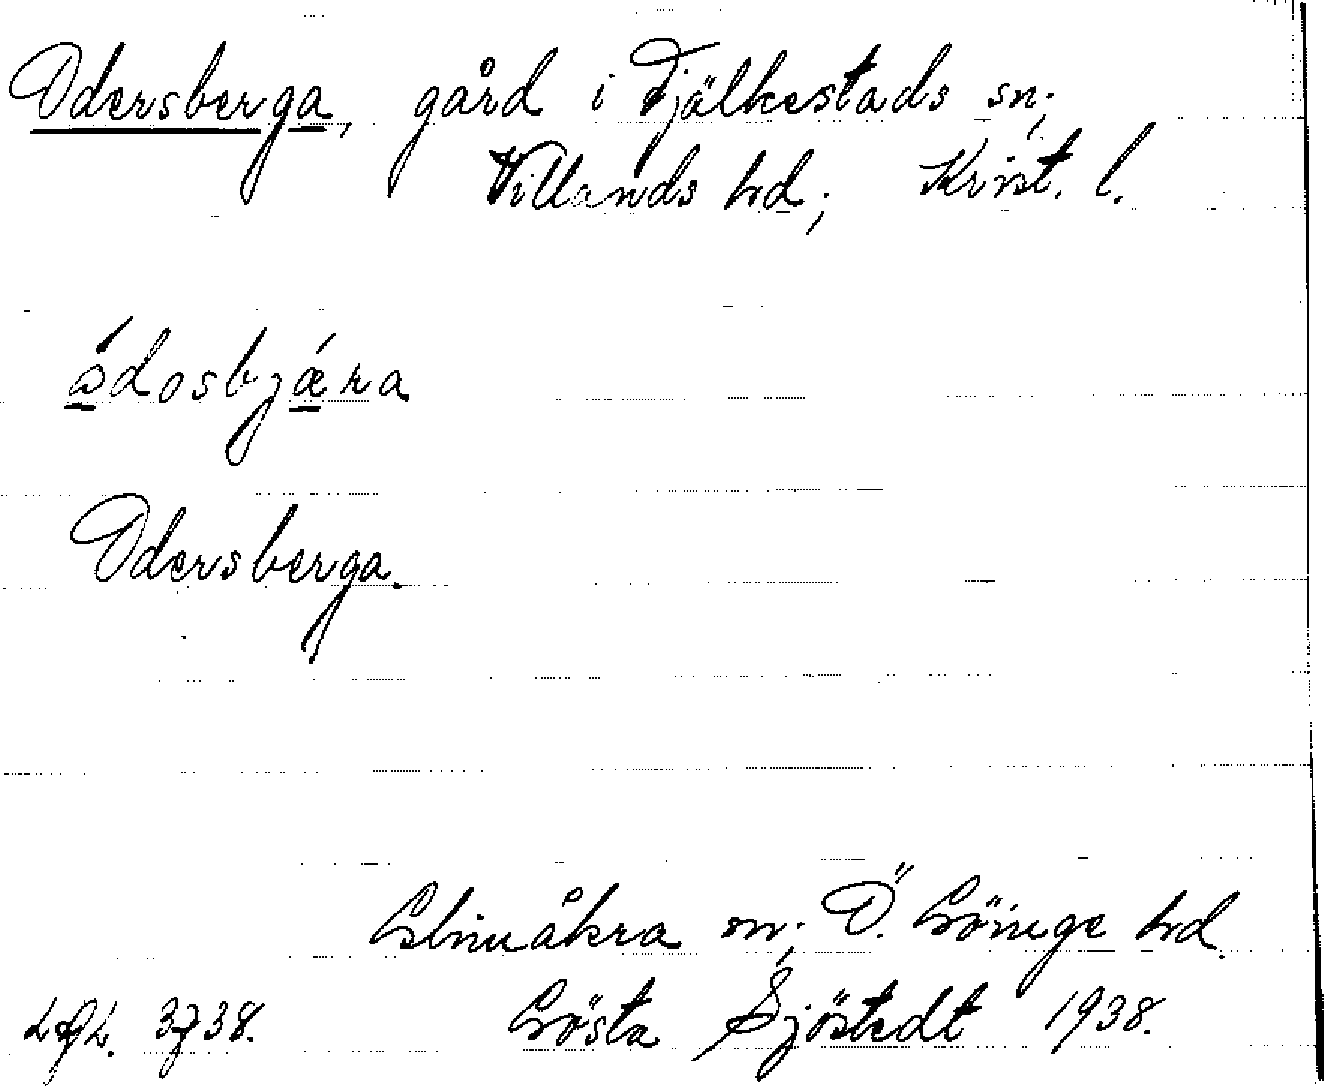 Odersberga, gård i Fjälkestads sn;
Villands hd; Krist. l.
ådosbjæra
Odersberga.
Glimåkra sn; Ö. Göinge hd.
Gösta Sjöstedt 1938.